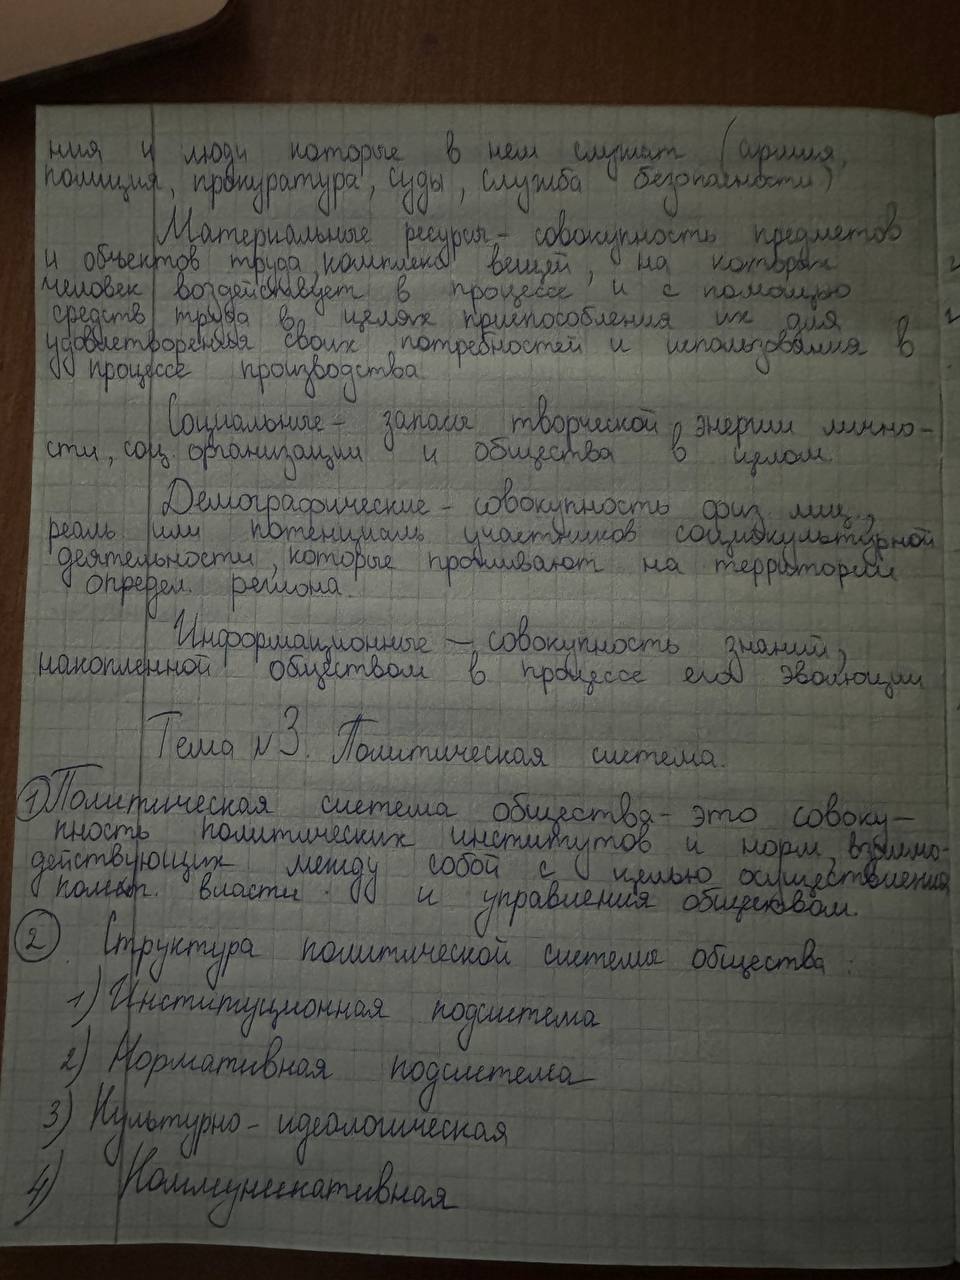 ния и люди которые в нем служат (армия,
полиция, прокуратура, суды, служба безопасности)
Материальные ресурсы - совокупность предметов
и объектов труда, комплекс вещей, на которых
человек воздействует в процессе и с помощью
средств труда в целях приспособления их для
удовлетворения своих потребностей и использования в
процессе производства
Социальные - запасы творческой энергии лично-
сти, соц. организации и общества в целом.
Демографические - совокупность физ лиц,
реаль или потенциаль участников социокультурной
деятельности, которые проживают на территории
определ. региона.
Информационные - совокупность знаний,
накопленной обществом в процессе его эволюции
Тема №3. Политическая система.
1 Политическая система общества - это совоку-
пность политических институтов и норм, взаимо-
действующих между собой с целью осуществления
власти и управления обществом.
2. Структура политической системы общества:
1) Институционная подсистема
2) Нормативная подсистема
3) Культурно - идеологическая
4) Коммуникативная